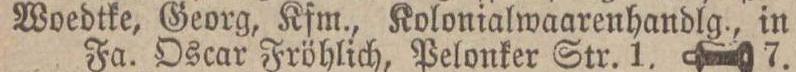 Woedtke, Georg, Kfm., Kolonialwaarenhandlg., in
Fa. Oscar Fröhlich, Pelonker Str. 1. 7.